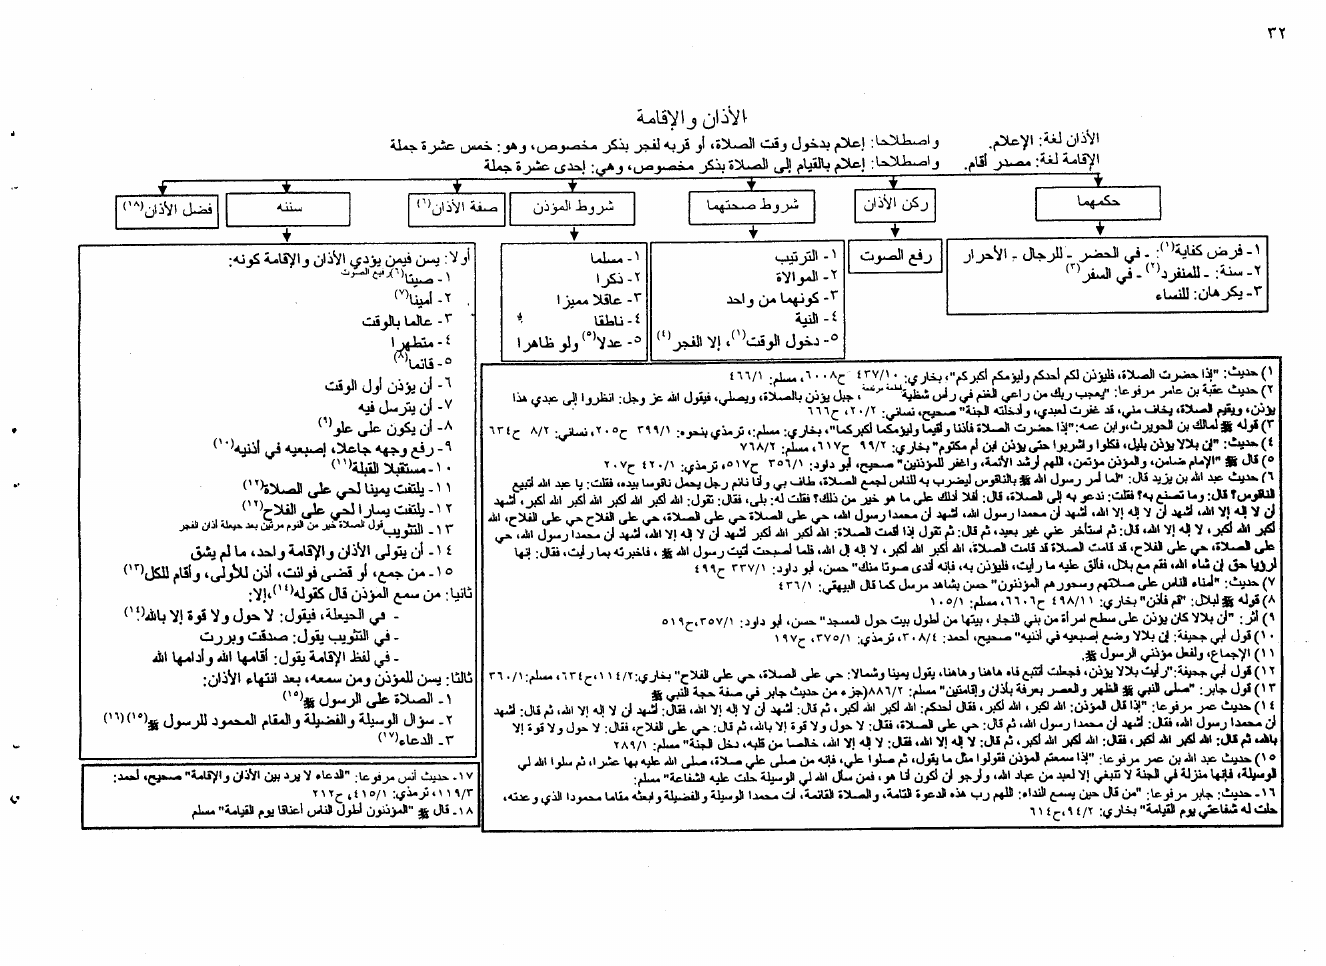 ٣٢
الأذان والإقامة
الأذان لغة: الإعلام. واصطلاحا: إعلام بدخول وقت الصلاة، أو قربه لفجر بذكر مخصوص، وهو: خمس عشرة جملة
الإقامة لغة: مصدر أقام. واصطلاحا: إعلام بالقيام إلى الصلاة بذكر مخصوص، وهي: إحدى عشرة جملة
حكمهما
ركن الأذان
شروط صحتهما
شروط المؤذن
صفة الأذان(٦)
سننه
فضل الأذان(١٨)
١- فرض كفاية(١): ـ في الحضر ـ للرجال ـ الأحرار
٢- سنة: ـ للمنفرد(٢) ـ في السفر(٣)
٣- يكرهان: للنساء
رفع الصوت
١- الترتيب
٢- الموالاة
٣- كونهما من واحد
٤- النية
٥- دخول الوقت(١)، إلا الفجر(٤)
١- مسلما
٢- ذكرا
٣- عاقلا مميزا
٤- ناطقا
٥- عدلا(٥) ولو ظاهرا
أولا: يسن فيمن يؤدي الأذان والإقامة كونه:
١- صيتا(٦)رفيع الصوت
٢- أمينا(٧)
٣- عالما بالوقت
٤- متطهرا
٥- قائما(٨)
٦- أن يؤذن أول الوقت
٧- أن يترسل فيه
٨- أن يكون على علو(٩)
٩- رفع وجهه جاعلا، إصبعيه في أذنيه(١٠)
١٠- مستقبلا القبلة(١١)
١١- يلتفت يمينا لحي على الصلاة(١٢)
١٢- يلتفت يسارا لحي على الفلاح(١٢)
١٣- التثويب قول الصلاة خير من النوم مرتين بعد حيعلة أذان الفجر
١٤- أن يتولى الأذان والإقامة واحد، ما لم يشق
١٥- من جمع، أو قضى فوائت، أذن للأولى، وأقام للكل(١٣)
ثانيا: من سمع المؤذن قال كقوله(١٤)،إلا:
- في الحيعلة، فيقول: لا حول ولا قوة إلا بالله(١٤)
- في التثويب يقول: صدقت وبررت
- في لفظ الإقامة يقول: أقامها الله وأدامها الله
ثالثا: يسن للمؤذن ومن سمعه، بعد انتهاء الأذان:
١- الصلاة على الرسول ﷺ(١٥)
٢- سؤال الوسيلة والفضيلة والمقام المحمود للرسول ﷺ(١٥)(١٦)
٣- الدعاء(١٧)
١) حديث: "إذا حضرت الصلاة، فليؤذن لكم أحدكم وليؤمكم أكبركم"، بخاري: ٤٣٧/١٠ ح٦٠٠٨، مسلم: ٤٦٦/١
٢) حديث عقبة بن عامر مرفوعا: "يعجب ربك من راعي الغنم في رأس شظية، جبل يؤذن بالصلاة، ويصلي، فيقول الله عز وجل: انظروا إلى عبدي هذا
يؤذن، ويقيم الصلاة، يخاف مني، قد غفرت لعبدي، وأدخلته الجنة" صحيح، نسائي: ٢٠/٢، ح٦٦٦
٣) قوله ﷺ لمالك بن الحويرث، وابن عمه:"إذا حضرت الصلاة فأذنا وأقيما وليؤمكما أكبركما"، بخاري: مسلم:، ترمذي بنحوه: ٣٩٩/١ ح٢٠٥، نسائي: ٨/٢ ح٦٣٤
٤) حديث: "إن بلالا يؤذن بليل، فكلوا واشربوا حتى يؤذن ابن أم مكتوم" بخاري: ٩٩/٢ ح٦١٧، مسلم: ٧٦٨/٢
٥) قال ﷺ "الإمام ضامن، والمؤذن مؤتمن، اللهم أرشد الأئمة، واغفر للمؤذنين" صحيح، أبو داود: ٣٥٦/١ ح٥١٧، ترمذي: ٤٢٠/١ ح٢٠٧
٦) حديث عبد الله بن يزيد قال: "لما أمر رسول الله ﷺ بالناقوس ليضرب به للناس لجمع الصلاة، طاف بي وأنا نائم رجل يحمل ناقوسا بيده، فقلت: يا عبد الله أتبيع
الناقوس؟ قال: وما تصنع به؟ فقلت: ندعو به إلى الصلاة، قال: أفلا أدلك على ما هو خير من ذلك؟ فقلت له: بلى، فقال: تقول: الله أكبر الله أكبر الله أكبر الله أكبر، أشهد
أن لا إله إلا الله، أشهد أن لا إله إلا الله، أشهد أن محمدا رسول الله، أشهد أن محمدا رسول الله، حي على الصلاة حي على الصلاة، حي على الفلاح حي على الفلاح، الله
أكبر الله أكبر، لا إله إلا الله، قال: ثم استأخر عني غير بعيد، ثم قال: ثم تقول إذا أقمت الصلاة: الله أكبر الله أكبر أشهد أن لا إله إلا الله، أشهد أن محمدا رسول الله، حي
على الصلاة، حي على الفلاح، قد قامت الصلاة قد قامت الصلاة، الله أكبر الله أكبر، لا إله إل الله، فلما أصبحت أتيت رسول الله ﷺ، فأخبرته بما رأيت، فقال: إنها
لرؤيا حق إن شاء الله، فقم مع بلال، فألق عليه ما رأيت، فليؤذن به، فإنه أندى صوتا منك" حسن، أبو داود: ٣٣٧/١ ح٤٩٩
٧) حديث: "أمناء الناس على صلاتهم وسحورهم المؤذنون" حسن بشاهد مرسل كما قال البيهقي: ٤٣٦/١
٨) قوله ﷺ لبلال: "قم فأذن" بخاري: ٤٩٨/١١ ح٦٦٠٦، مسلم: ١٠٥/١
٩) أثر: "أن بلالا كان يؤذن على سطح امرأة من بني النجار، بيتها من أطول بيت حول المسجد" حسن، أبو داود: ٣٥٧/١، ح٥١٩
١٠) قول أبي جحيفة: إن بلالا وضع إصبعيه في أذنيه" صحيح، أحمد: ٣٠٨/٤، ترمذي: ٣٧٥/١، ح١٩٧
١١) الإجماع، ولفعل مؤذني الرسول ﷺ.
١٢) قول أبي جحيفة:"رأيت بلالا يؤذن، فجعلت أتتبع فاه هاهنا وهاهنا، يقول يمينا وشمالا: حي على الصلاة، حي على الفلاح" بخاري:١١٤/٢،ح٦٣٤، مسلم:٣٦٠/١
١٣) قول جابر: "صلى النبي ﷺ الظهر والعصر بعرفة بأذان وإقامتين" مسلم: ٨٨٦/٢(جزء من حديث جابر في صفة حجة النبي ﷺ
١٤) حديث عمر مرفوعا: "إذا قال المؤذن: الله أكبر، الله أكبر، فقال أحدكم: الله أكبر، الله أكبر، ثم قال: أشهد أن لا إله إلا الله، فقال: أشهد أن لا إله إلا الله، ثم قال: أشهد
أن محمدا رسول الله، فقال: أشهد أن محمدا رسول الله، ثم قال: حي على الصلاة، فقال: لا حول ولا قوة إلا بالله، ثم قال: حي على الفلاح، فقال: لا حول ولا قوة إلا
بالله، ثم قال: الله أكبر، الله أكبر، فقال: الله أكبر الله أكبر، ثم قال: لا إله إلا الله، فقال: لا إله إلا الله، خالصا من قلبه، دخل الجنة" مسلم: ٢٨٩/١
١٥) حديث عبد الله بن عمر مرفوعا: "إذا سمعتم المؤذن فقولوا مثل ما يقول، ثم صلوا علي، فإنه من صلى علي صلاة، صلى الله عليه بها عشرا، ثم سلوا الله لي
الوسيلة، فإنها منزلة في الجنة لا تنبغي إلا لعبد من عباد الله، وأرجو أن أكون أنا هو، فمن سأل الله لي الوسيلة حلت عليه الشفاعة" مسلم:
١٦- حديث: جابر مرفوعا: "من قال حين يسمع النداء: اللهم رب هذه الدعوة التامة، والصلاة القائمة، آت محمدا الوسيلة والفضيلة وابعثه مقاما محمودا الذي وعدته،
حلت له شفاعتي يوم القيامة" بخاري: ٩٤/٢،ح٦١٤
١٧- حديث أنس مرفوعا: "الدعاء لا يرد بين الأذان والإقامة" صحيح، أحمد:
١١٩/٣،ترمذي: ٤١٥/١، ح٢١٢
١٨- قال ﷺ "المؤذنون أطول الناس أعناقا يوم القيامة" مسلم